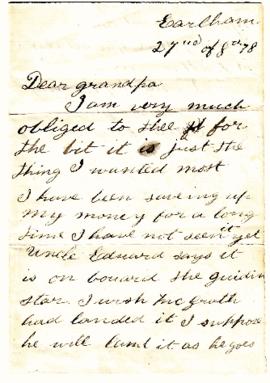 Earlham.
27nd of 8th 78
Dear grandpa
I am very much
obliged to thee for
the bit it is just the
thing I wanted most
I have been saveing up
My money for a long
time I have not seen it yet
Uncle Edward says it
is on bouard the guiding
star. I wish
had landed it I suppose
he will land it as he goes